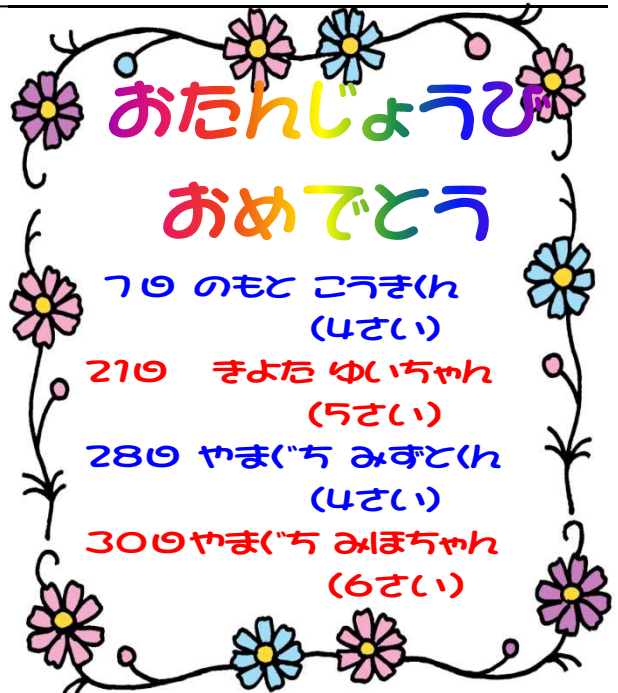 おたんじょうび
おめでとう
7日 のもと こうきくん
(4さい)
21日 きよた ゆいちゃん
(5さい)
28日 やまぐち みずとくん
(4さい)
30日やまぐち みほちゃん
(6さい)